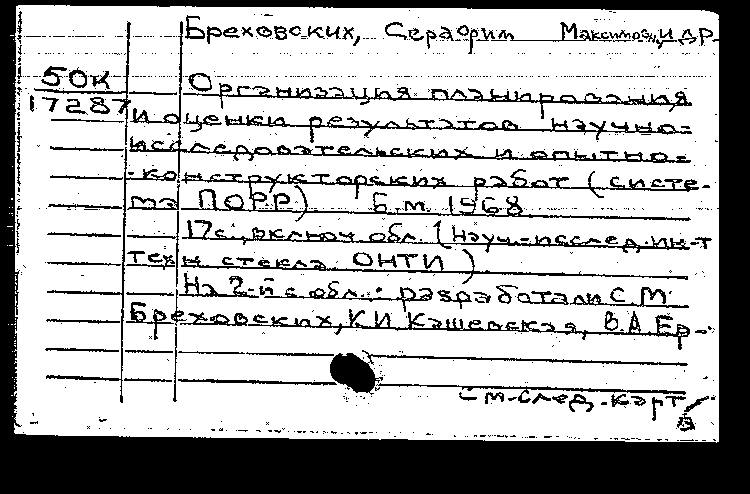 Бреховских, Серафим Максимов., и др.
50К
17287
Организация планирования
и оценки результатов научно=
исследовательских и опытно=
-конструкторских работ (систе-
ма ПОРР) Б.м. 1968
17с., включ обл. (Науч.-исслед. ин-т
техн стекла ОНТИ)
На 2-й с обл.: разработали С.М.
Бреховских, К И Кашевская, В.А Ер-
См. след. карт